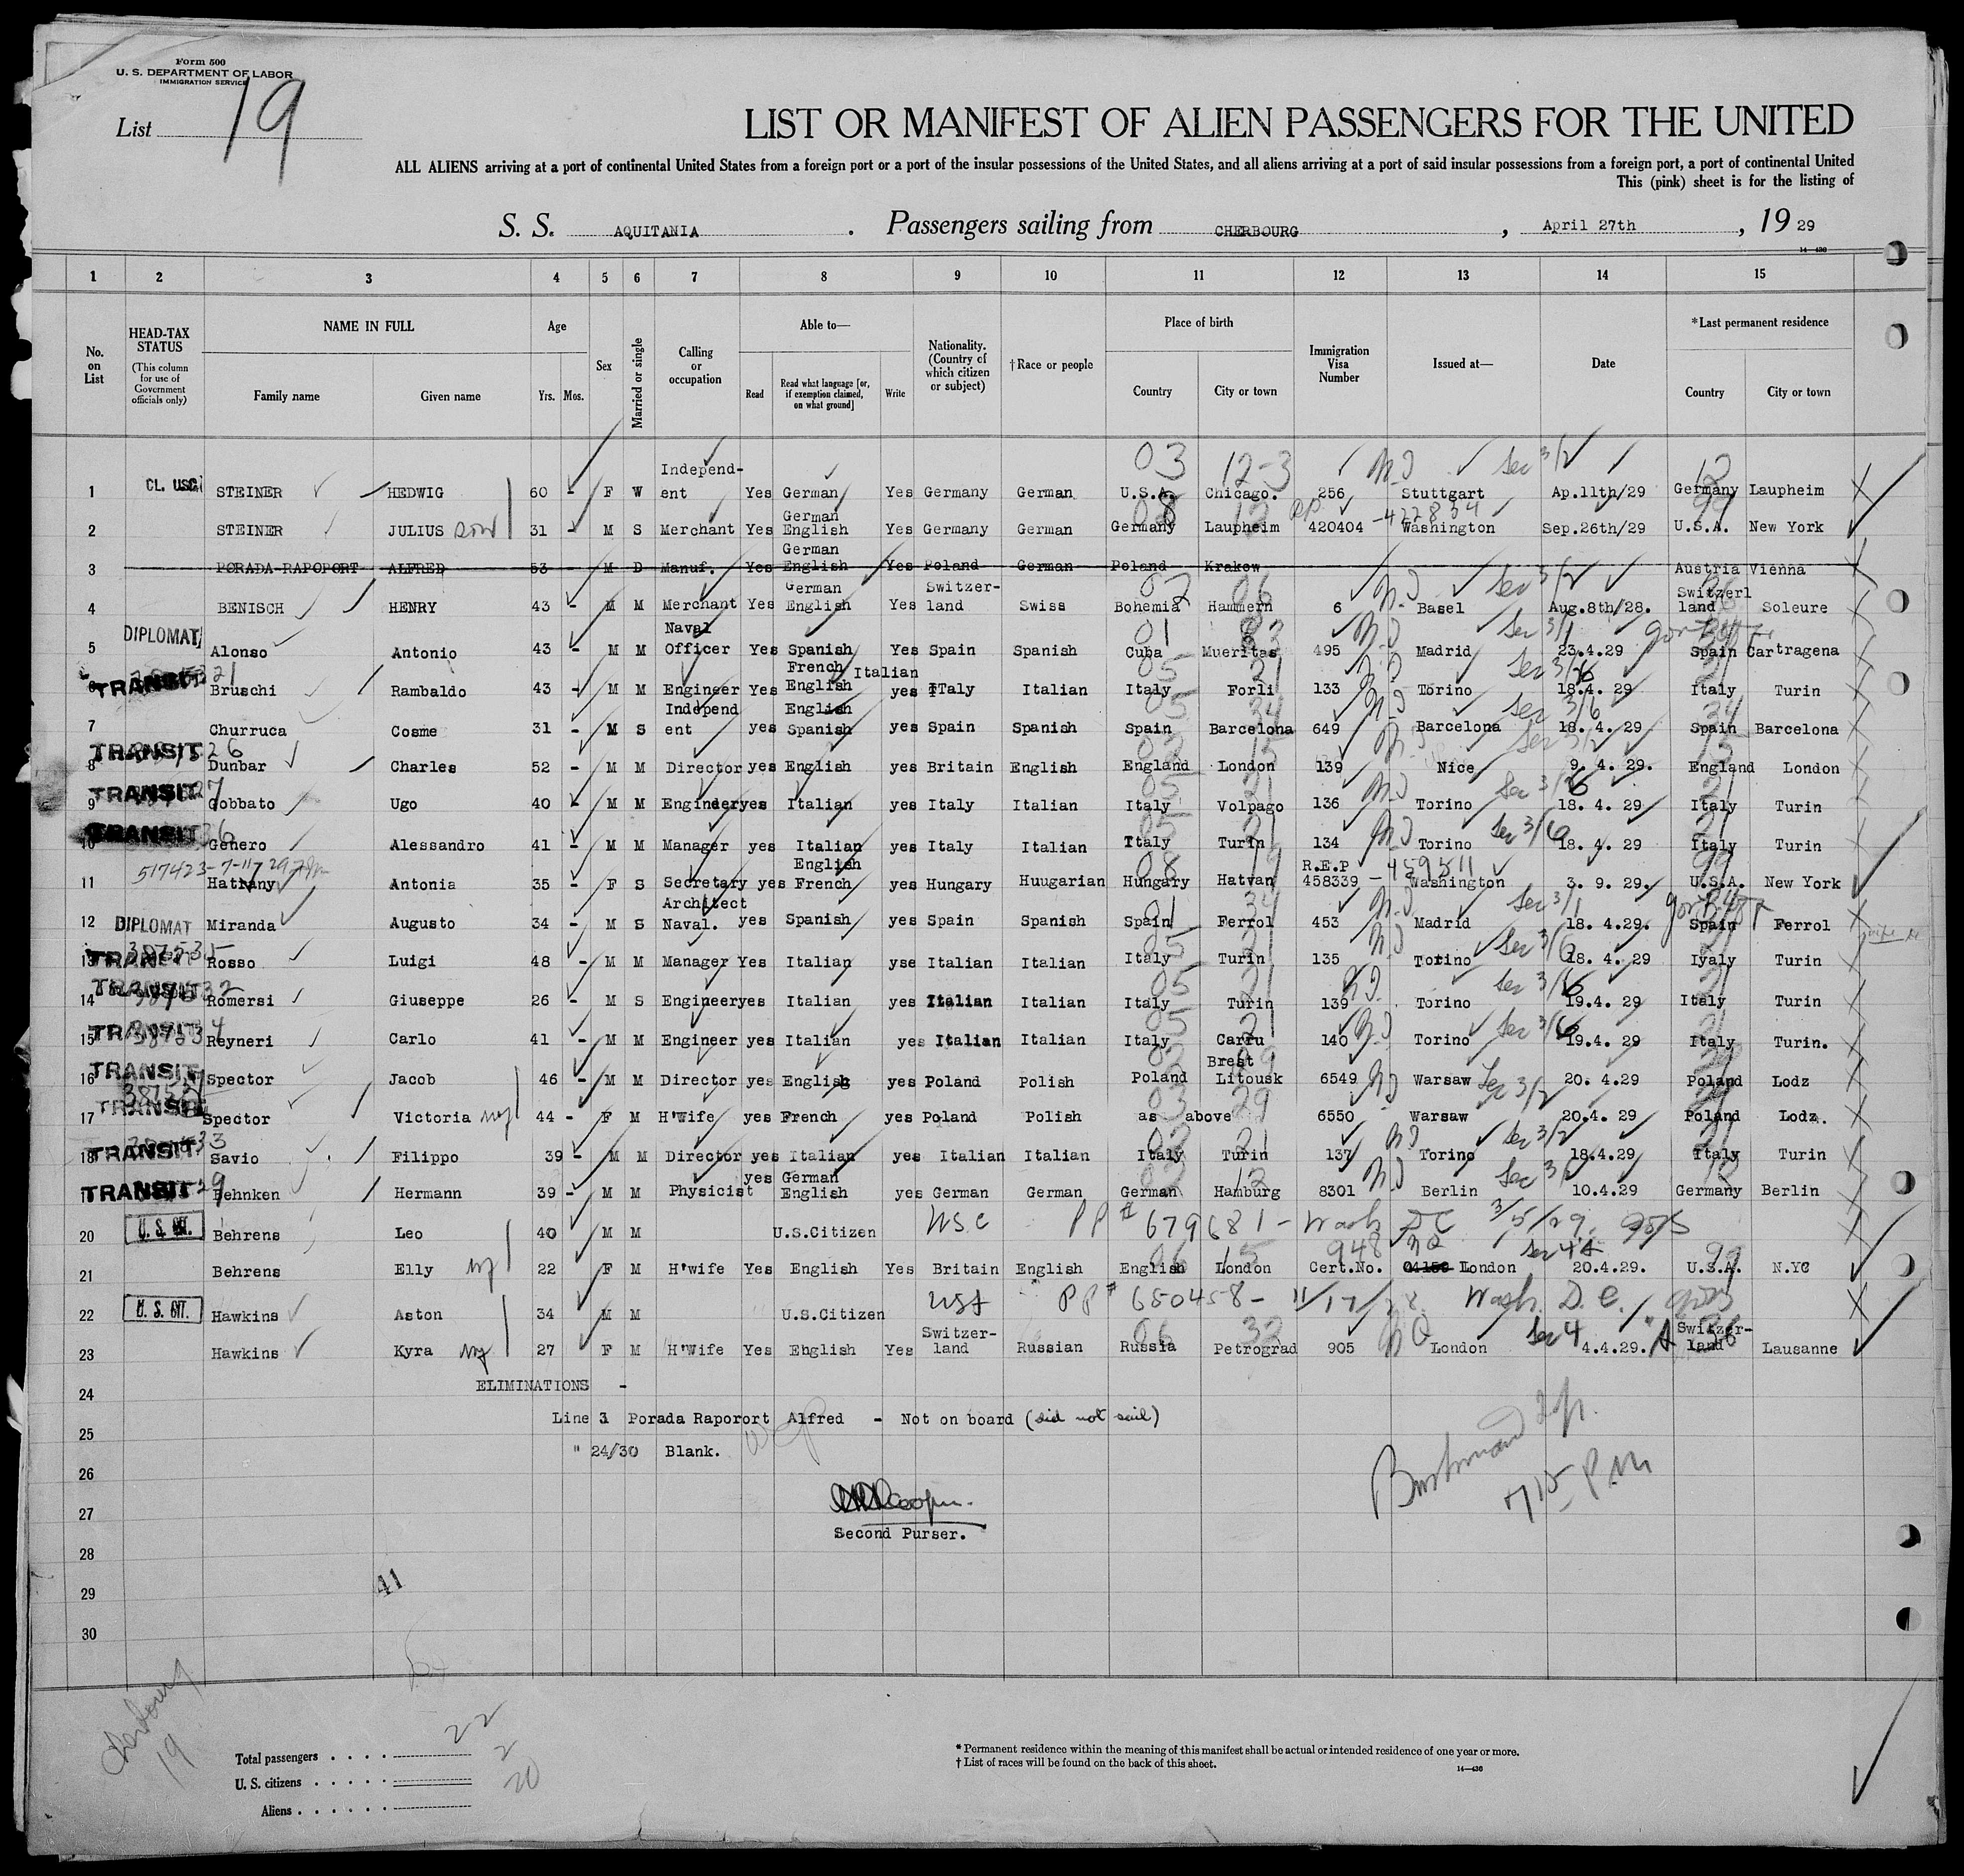 Form 500
U. S. DEPARTMENT OF LABOR
IMMIGRATION SERVICE
List 19
LIST OR MANIFEST OF ALIEN PASSENGERS FOR THE UNITED
ALL ALIENS arriving at a port of continental United States from a foreign port or a port of the insular possessions of the United States, and all aliens arriving at a port of said insular possessions from a foreign port, a port of continental United
This (pink) sheet is for the listing of
S. S. AQUITANIA . Passengers sailing from CHERBOURG , April 27th , 19 29
14—430
1 2 3 4 5 6 7 8 9 10 11 12 13 14 15
No. on List
HEAD-TAX STATUS
(This column for use of Government officials only)
NAME IN FULL
Family name Given name
Age
Yrs. Mos.
Sex
Married or single
Calling or occupation
Able to—
Read
Read what language [or, if exemption claimed, on what ground]
Write
Nationality. (Country of which citizen or subject)
†Race or people
Place of birth
Country City or town
Immigration Visa Number
Issued at—
Date
*Last permanent residence
Country City or town
1 CL. USC STEINER HEDWIG 60 - F W Independ-ent Yes German Yes Germany German U.S.A. Chicago. 256 Stuttgart Ap.11th/29 Germany Laupheim
03 12-3 Sec 3/2 12
2 STEINER JULIUS son 31 - M S Merchant Yes German English Yes Germany German Germany Laupheim PP 420404 -422834 Washington Sep.26th/29 U.S.A. New York
3 PORADA-RAPOPORT ALFRED 53 - M D Manuf. Yes German English Yes Poland German Poland Krakow Austria Vienna
4 BENISCH HENRY 43 - M M Merchant Yes German English Yes Switzer-land Swiss Bohemia Hammern 6 Basel Aug.8th/28. Switzerl land Soleure
5 DIPLOMAT Alonso Antonio 43 - M M Naval Officer Yes Spanish Yes Spain Spanish Cuba Mueritas 495 Madrid 23.4.29 Spain Cartragena
6 TRANSIT Bruschi Rambaldo 43 - M M Engineer Yes French Italian English yes ITaly Italian Italy Forli 133 Torino 18.4. 29 Italy Turin
7 Churruca Cosme 31 - M S Independ ent yes English Spanish yes Spain Spanish Spain Barcelona 649 Barcelona 18. 4. 29 Spain Barcelona
8 TRANSIT Dunbar Charles 52 - M M Director yes English yes Britain English England London 139 Nice 9. 4. 29. England London
9 TRANSIT Gobbato Ugo 40 - M M Engineer yes Italian yes Italy Italian Italy Volpago 136 Torino 18. 4. 29 Italy Turin
10 TRANSIT Genero Alessandro 41 - M M Manager yes Italian yes Italy Italian Italy Turin 134 Torino 18. 4. 29 Italy Turin
11 Hatvany Antonia 35 - F S Secretary yes English French yes Hungary Huugarian Hungary Hatvan R.E.P 458339 -459511 Washington 3. 9. 29. U.S.A. New York
12 DIPLOMAT Miranda Augusto 34 - M S Architect Naval. yes Spanish yes Spain Spanish Spain Ferrol 453 Madrid 18. 4.29. Spain Ferrol
13 TRANSIT Rosso Luigi 48 - M M Manager Yes Italian yse Italian Italian Italy Turin 135 Torino 18. 4. 29 Iyaly Turin
14 TRANSIT Romersi Giuseppe 26 - M S Engineer yes Italian yes Italian Italian Italy Turin 139 Torino 19.4. 29 Italy Turin
15 TRANSIT Reyneri Carlo 41 - M M Engineer yes Italian yes Italian Italian Italy Carru 140 Torino 19.4. 29 Italy Turin.
16 TRANSIT Spector Jacob 46 - M M Director yes English yes Poland Polish Poland Brest Litousk 6549 Warsaw 20. 4.29 Poland Lodz
17 TRANSIT Spector Victoria 44 - F M H'Wife yes French yes Poland Polish as above 6550 Warsaw 20.4. 29 Poland Lodz.
18 TRANSIT Savio Filippo 39 - M M Director yes Italian yes Italian Italian Italy Turin 137 Torino 18.4.29 Italy Turin
TRANSIT Behnken Hermann 39 - M M Physicist yes German English yes German German German Hamburg 8301 Berlin 10.4.29 Germany Berlin
20 U. S. CIT. Behrens Leo 40 M M U.S.Citizen USC PP# 679681 - Wash DC 3/5/29
21 Behrens Elly 22 F M H'wife Yes English Yes Britain English English London 948 Cert.No. London 20.4.29. U.S.A. N.YC
22 U. S. CIT. Hawkins Aston 34 M M U.S.Citizen PP# 650458 - 11/17/28. Wash. D. C.
23 Hawkins Kyra 27 F M H'Wife Yes Ehglish Yes Switzer-land Russian Russia Petrograd 905 London 4.4.29. Switzer-land Lausanne
24 ELIMINATIONS -
Line 3 Porada Raporort Alfred - Not on board (did not sail)
25
" 24/30 Blank.
26
27
Cooper.
Second Purser.
28
29
41
30
715 PM
Cherbourg
19
Total passengers . . . . . 22
U. S. citizens . . . . . 2
Aliens . . . . . . 20
* Permanent residence within the meaning of this manifest shall be actual or intended residence of one year or more.
† List of races will be found on the back of this sheet.
14—430